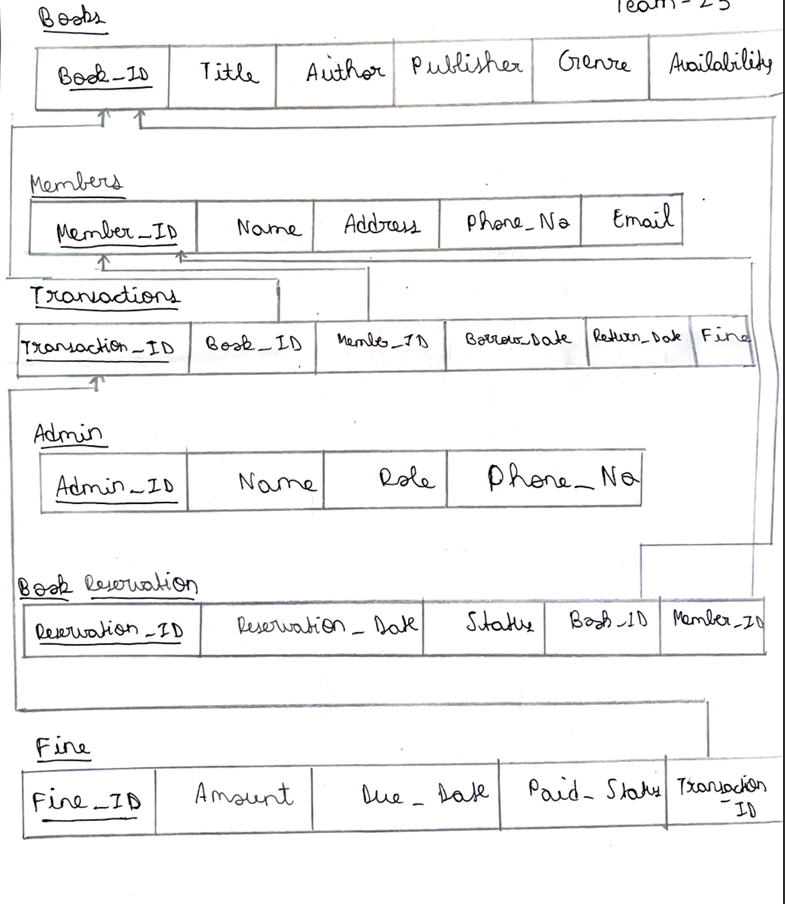 Team-23
Books
Book_ID Title Author Publisher Genre Availability
Members
Member_ID Name Address Phone_No Email
Transactions
Transaction_ID Book_ID Membe_ID Borrow_Date Return_Date Fine
Admin
Admin_ID Name Role Phone_No
Book Reservation
Reservation_ID Reservation_Date Status Book_ID Member_ID
Fine
Fine_ID Amount Due_Date Paid_Status Transaction
_ID